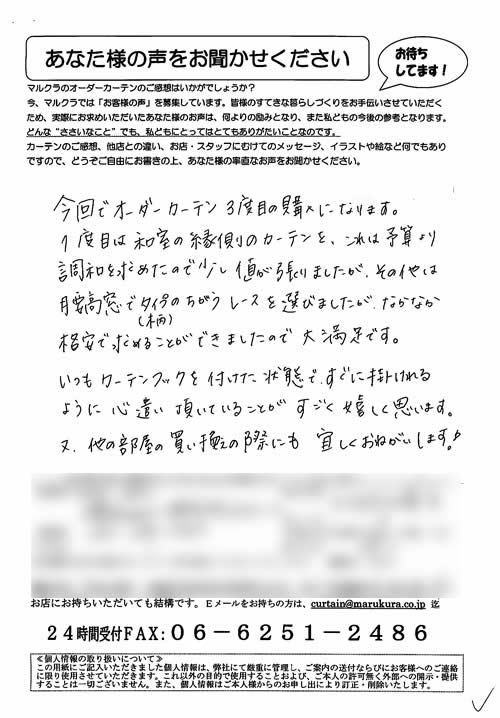 あなた様の声をお聞かせください
お待ち
してます!
マルクラのオーダーカーテンのご感想はいかがでしょうか?
今、マルクラでは「お客様の声」を募集しています。皆様のすてきな暮らしづくりをお手伝いさせていただく
ため、実際にお求めいただいたあなた様のお声は、何よりの励みとなり、また私どもの今後の参考となります。
どんな“ささいなこと”でも、私どもにとってはとてもありがたいことなのです。
カーテンのご感想、他店との違い、お店・スタッフにむけてのメッセージ、イラストや絵など何でもあり
ですので、どうぞご自由にお書きの上、あなた様の率直なお声をお聞かせください。
今回でオーダーカーテン3度目の購入になります。
1度目は和室の縁側のカーテンを、これは予算より
調和を求めたので少し値が張りましたが、その他は
腰高窓でタイプのちがうレースを選びましたが、なかなか
(柄)
格安で求めることができましたので大満足です。
いつもカーテンフックを付けた状態で、すぐに掛けれる
ように心遣い頂いていることがすごく嬉しく思います。
又、他の部屋の買い換えの際にも宜しくおねがいします♪
お店にお持ちいただいても結構です。Eメールをお持ちの方は、curtain@marukura.co.jp 迄
24時間受付FAX:06-6251-2486
≪個人情報の取り扱いについて≫
この用紙にご記入いただきました個人情報は、弊社にて厳重に管理し、ご案内の送付ならびにお客様へのご連絡
に限り使用させていただきます。これ以外の目的で使用すること、および、ご本人の許可無く外部への開示・提供
することは一切ございません。また、個人情報はご本人様からのお申し出により訂正・削除いたします。